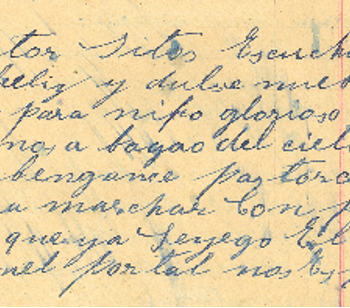 tor Sitos Escuch
heliz y dulse nuev
para niño glorioso
nos a bagao del ciel
bengance pastorc
a marchar Con p
que ya Seyego El
nel portal nos Es